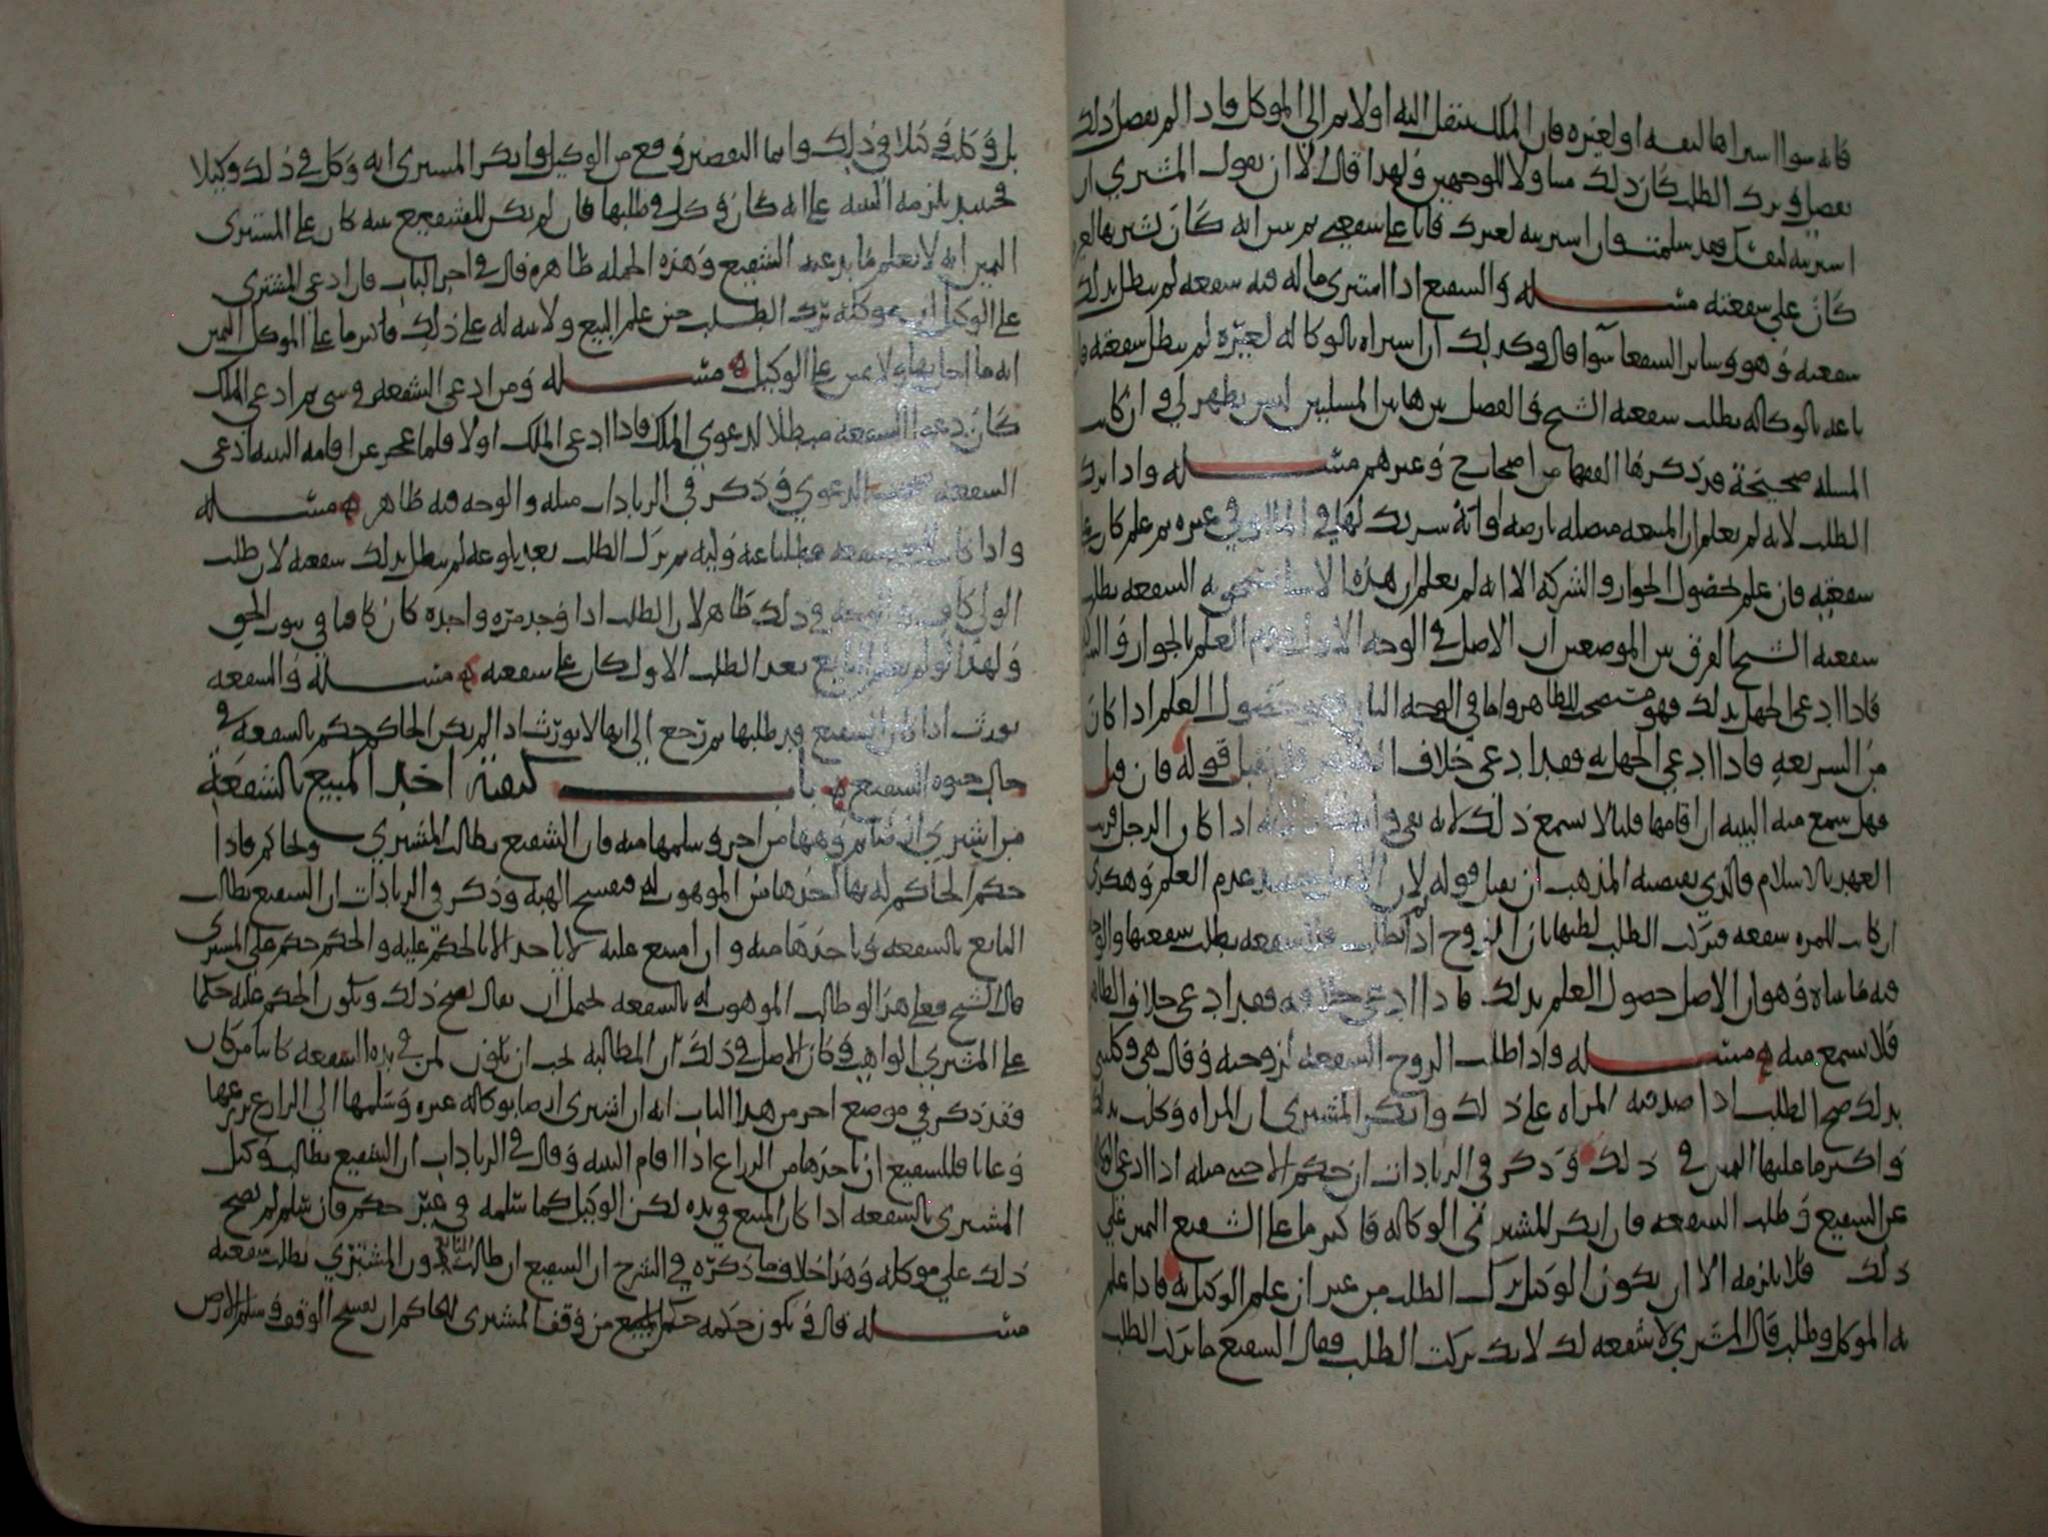 فانه سوا اشتراها لنفسه او لغيره فان الملك ينتقل اليه اولا ثم الى الموكل فاذا لم يفصل ذلك
يفصل في ترك الطلب كان ذلك متناولا للوجهين ولهذا قال الا ان يقول المشتري ان
اشتريته لنفسك فقد سلمت وان اشتريته لغيرك فانا على شفعتي ثم تبين انه كان شريها لغيره
كان على شفعته مسئله والشفيع اذا اشترى ما له فيه شفعه لم تبطل بذلك
شفعته وهو وسائر الشفعا سوا قال وكذلك ان اشتراه بالوكاله لغيره لم تبطل شفعته فان
باعه بالوكاله بطلت شفعته الشيخ في الفصل بين هاتين المسلتين ليس يظهر لي وان كانت
المسله صحيحة قد ذكرها الفقها من اصحاب ح وغيرهم مسئله واذا ترك
الطلب لانه لم يعلم ان المبيعه متصله بارضه او انه شريك لها في الما او في غيره ثم علم كان على
شفعته فان علم حصول الجوار والشركه الا انه لم يعلم ان هذه الاسباب يستحق به الشفعه بطلت
شفعته الشيخ الفرق بين الموضعين ان الاصل في الوجه الاول عدم العلم بالجوار و
فاذا ادعى الجهل بذلك فهو متمسك بالظاهر واما في الوجه الثاني فهو حصول العلم اذا كان
من الشريعه فاذا ادعى الجهل به فقد ادعى خلاف الظاهر فلا يقبل قوله فان قيل
فهل تسمع منه البينه ان اقامها قلنا لا تسمع ذلك لانه نفي اذا كان الرجل قريب
العهد بالاسلام فالذي يقتضيه المذهب ان يقبل قوله لان الاصل عدم العلم وهكذا
ان كانت للمره شفعه فتركت الطلب لظنها بان الزوج اذا بطلت شفعتها والوجه
فيه ما بيناه وهو ان الاصل حصول العلم بذلك فاذا ادعى خلافه فقد ادعى خلاف الظاهر
فلا تسمع منه مسئله واذا طلب الزوج الشفعه لزوجته وقال هي وكلتني
بذلك صح الطلب اذا صدقته المراه على ذلك وانكر المشتري ان المراه وكلت بذلك
واكثر ما عليها اليمين في ذلك وذكر في الزيادات ان حكم الاجنبي مثله اذا ادعى الوكاله
عن الشفيع في طلب الشفعه فان انكر المشتري الوكاله فاكثر ما على الشفيع اليمين على
ذلك قلنا يلزمه الا ان يكون الوكيل ترك الطلب من غير ان علم الوكيل به فاذا علم
به الموكل وطلب قال المشتري لا شفعه لك لانك تركت الطلب فقال الشفيع ما تركت الطلب
بل وكلت وكيلا في ذلك وانما التقصير وقع من الوكيل وانكر المشتري انه وكل في ذلك وكيلا
فحينئذ يلزمه البينه على انه كان وكل في طلبها فان لم يكن للشفيع بينه كان على المشتري
اليمين انه لا يعلم ما يدعيه الشفيع وهذه الجمله ظاهره قال في اخر الباب فان ادعى المشتري
على الوكيل او موكله ترك الطلب حين علم البيع ولا بينه له على ذلك فاكثر ما على الموكل اليمين
انه ما ولا يمين على الوكيل مسئله ومن ادعى الشفعه في شي ثم ادعى الملك
كان دعوى الشفعه مبطلا لدعوى الملك فاذا ادعى الملك اولا فلما عجز عن اقامه البينه ادعى
الشفعه الدعوى وذكر في الزيادات مثله والوجه فيه ظاهر مسئله
واذا كان شفعه فطلبها عنه وليه ثم ترك الطلب بعد بلوغه لم تبطل بذلك شفعته لان طلب
الولي كاف والوجه في ذلك ظاهر لان الطلب اذا وجد مره واحده كان كافيا في ثبوت الحق
ولهذا لو لم البايع بعد الطلب الاول كان على شفعته مسئله والشفعه
تورث اذا كان الشفيع قد طلبها ثم رجع الى انها لا تورث اذا لم يكن الحاكم حكم بالشفعه في
حال حيوه الشفيع باب كيفية اخذ المبيع بالشفعة
من اشترى ارضا ثم وهبها من اخر وسلمها منه فان الشفيع يطالب المشتري ويحاكم فاذا
حكم الحاكم له بها اخذها من الموهوب له فيفسخ الهبه وذكر في الزيادات ان الشفيع يطالب
البايع بالشفعه وياخذها منه وان امتنع عليه لا ياخذ الا بالحكم عليه والحكم حكم على المشتري
قال الشيخ فعلى هذا لو طالب الموهوب له بالشفعه يحتمل ان يقال يصح ذلك ويكون الحكم عليه حكما
على المشتري الواهب وكان الاصل في ذلك ان المطالبه يجب ان تكون لمن في يده الشفعه كائنا من كان
وقد ذكر في موضع اخر من هذا الباب انه ان اشترى ارضا بوكاله غيره وسلمها الى الزارع
وغابا فللشفيع ان ياخذها من الزراع اذا اقام البينه وقال في الزيادات ان الشفيع يطالب وكيل
المشتري بالشفعه اذا كان المبيع في يده لكن الوكيل كما سلمه في غير حكم فان سلم لم يصح
ذلك على موكله وهذا خلاف ما ذكره في الشرح ان الشفيع ان طالب البايع دون المشتري بطلت شفعته
مسئله قال ويكون حكمه حكم المبيع من وقف المشتري للحاكم ان يفسخ الوقف ويسلم الارض